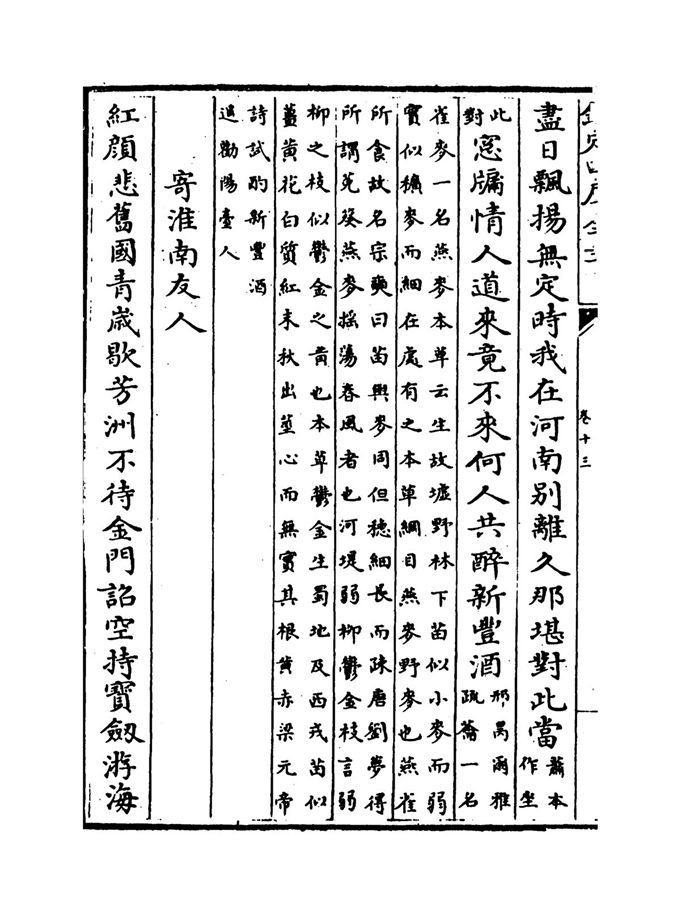 欽定四庫全書
卷十三
盡日飄揚無定時我在河南別離久那堪對此當蕭本作坐
此對窓牖情人道來竟不來何人共醉新豐酒邢昺爾雅疏蘥一名
雀麥一名燕麥本草云生故墟野林下苗似小麥而弱
實似穬麥而細在處有之本草綱目燕麥野麥也燕雀
所食故名宗奭曰苗與麥同但穗細長而疎唐劉夢得
所謂菟葵燕麥揺蕩春風者也河堤弱柳鬱金枝言弱
柳之枝似鬱金之黄也本草鬱金生蜀地及西戎苗似
薑黄花白質紅末秋出莖心而無實其根黄赤梁元帝
詩試酌新豐酒
遥勸陽臺人
寄淮南友人
紅顔悲舊國青嵗歇芳洲不待金門詔空持寳劔游海